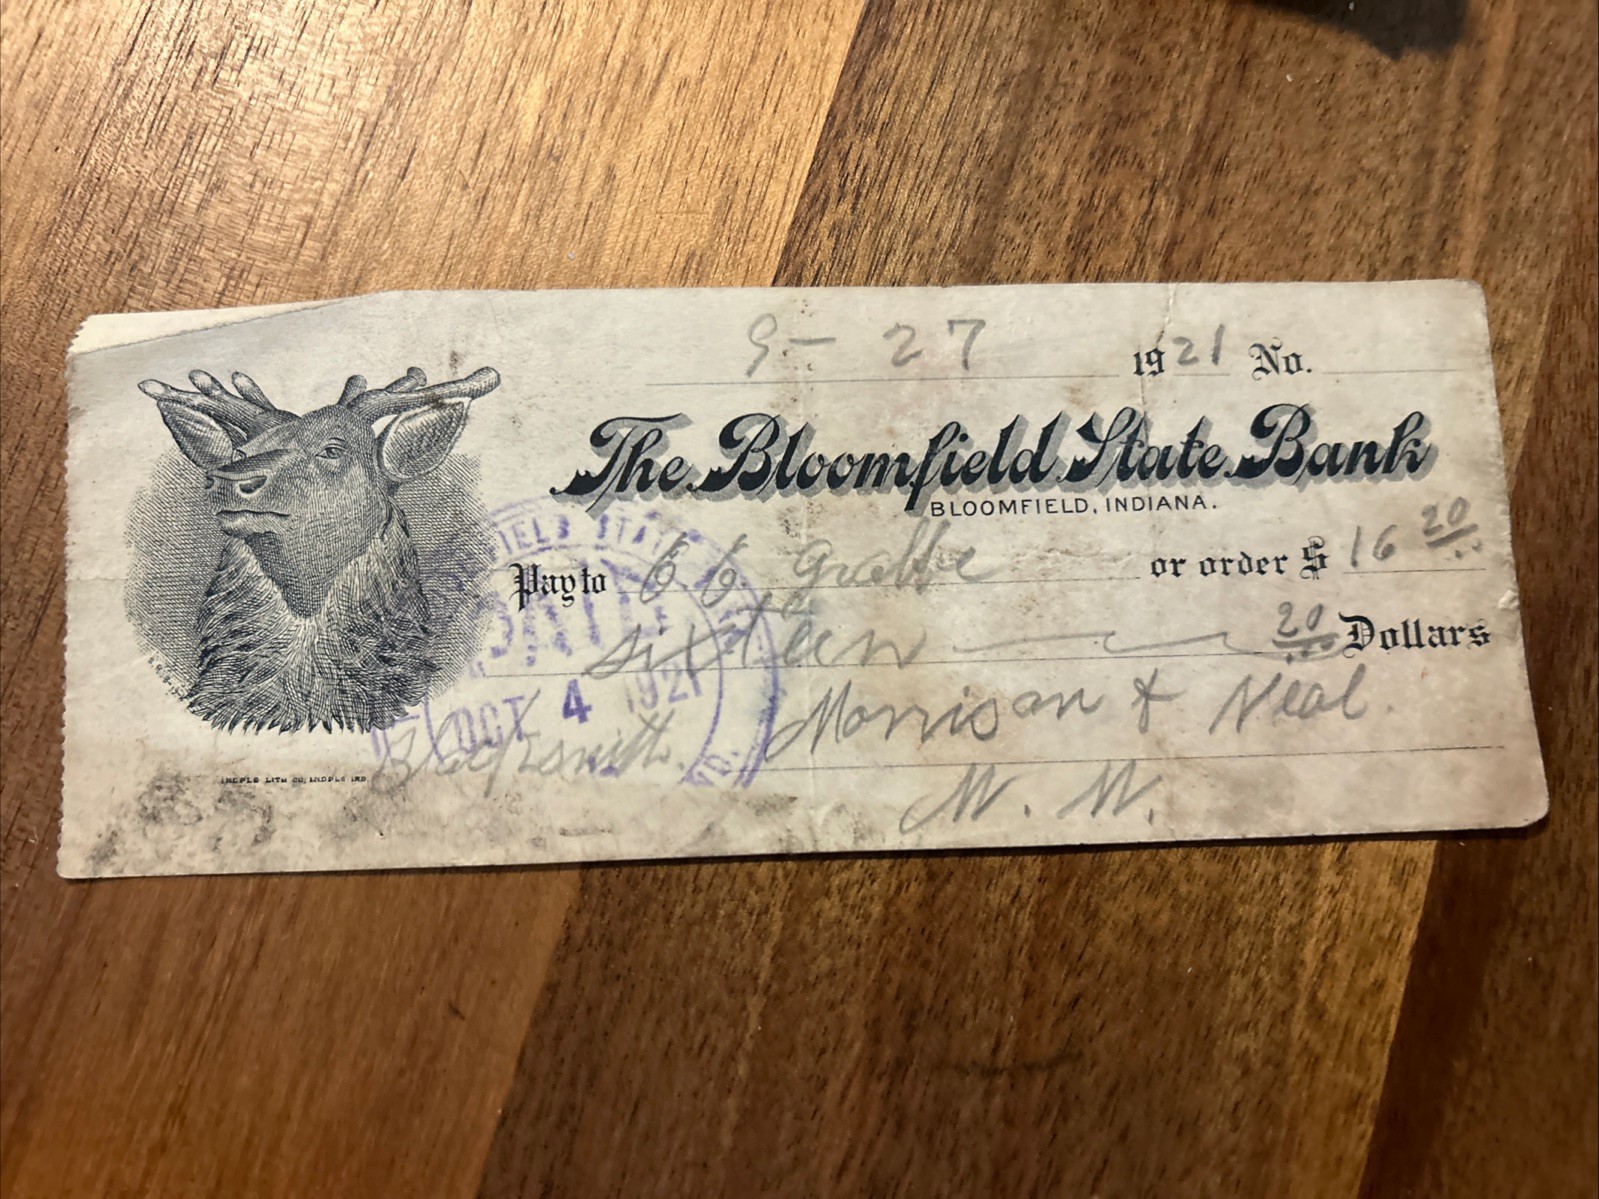 9-27 1921 No.
The Bloomfield State Bank
BLOOMFIELD, INDIANA.
Pay to C. C. or order $ 16 20
sixteen 20 Dollars
Morrison & Neal.
OCT 4 1921
INDPLS LITH CO, INDPLS IND.